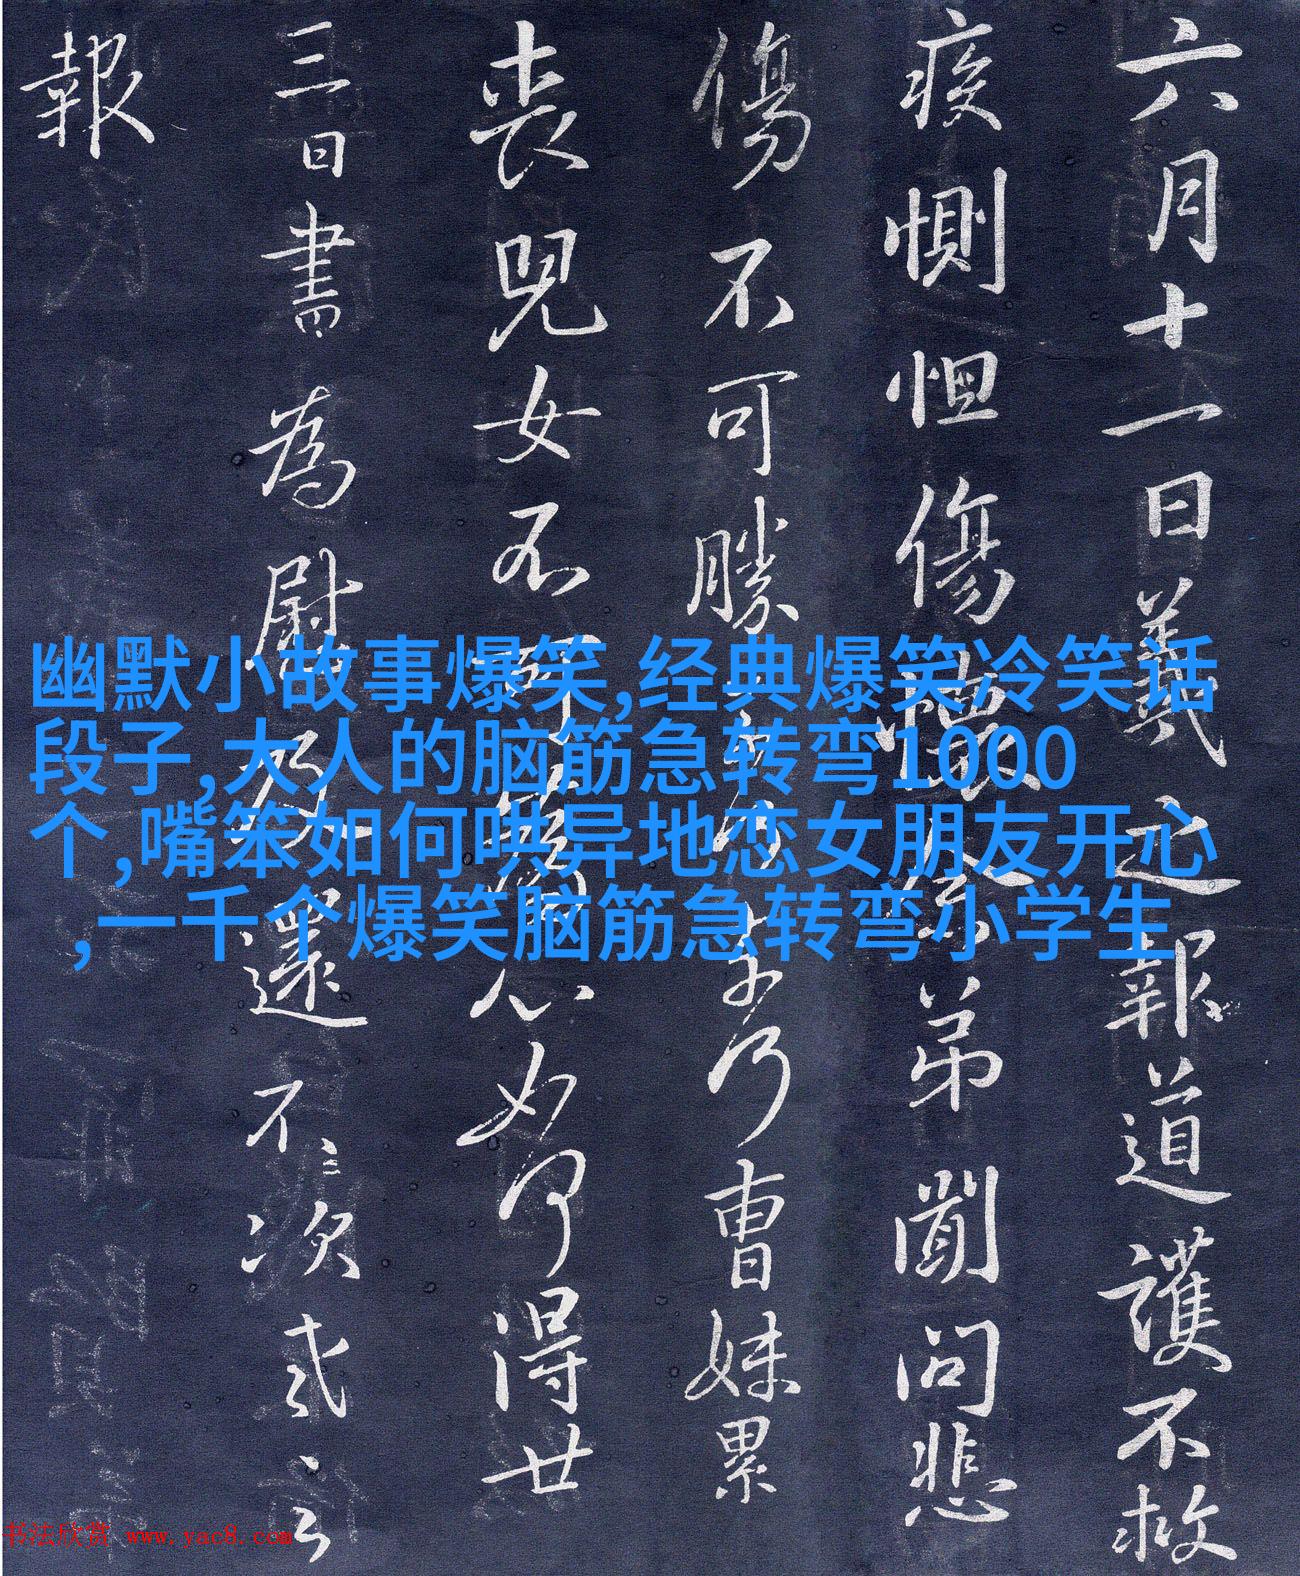 六月十一日羲之報道護不救
疾惻怛傷弟聞問悲
傷不可勝曹妹累
喪兒女不可為心如何得廿
三日書為慰及還不次
報
幽默小故事爆笑,经典爆笑冷笑话
段子,大人的脑筋急转弯1000
个,嘴笨如何哄异地恋女朋友开心
,一千个爆笑脑筋急转弯小学生
书法欣赏 www.yac8.com